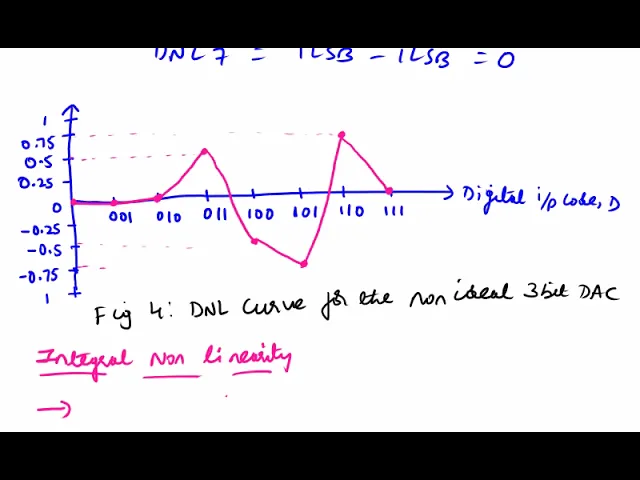 DNL 7 = 1LSB - 1LSB = 0
1
0.75
0.5
0.25
0
-0.25
-0.5
-0.75
1
001 010 011 100 101 110 111
Digital i/p code, D
Fig 4: DNL Curve for the non ideal 3 bit DAC
Integral Non linearity
→